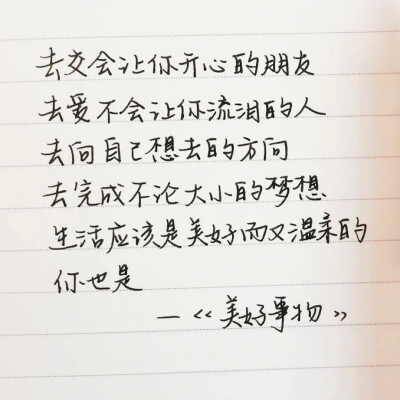 去交会让你开心的朋友
去爱不会让你流泪的人
去向自己想去的方向
去完成不论大小的梦想
生活应该是美好而又温柔的
你也是
—《美好事物》